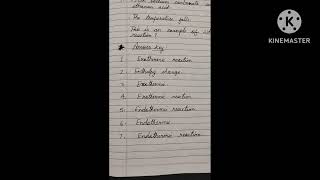 ethanoic acid.
The temperature falls.
This is an example of
reaction?
Answer Key
1. Exothermic reaction
2. Enthalpy change
3. Exothermic
4. Exothermic reaction
5. Endothermic reaction
6. Endothermic
7. Endothermic reaction
KINEMASTER